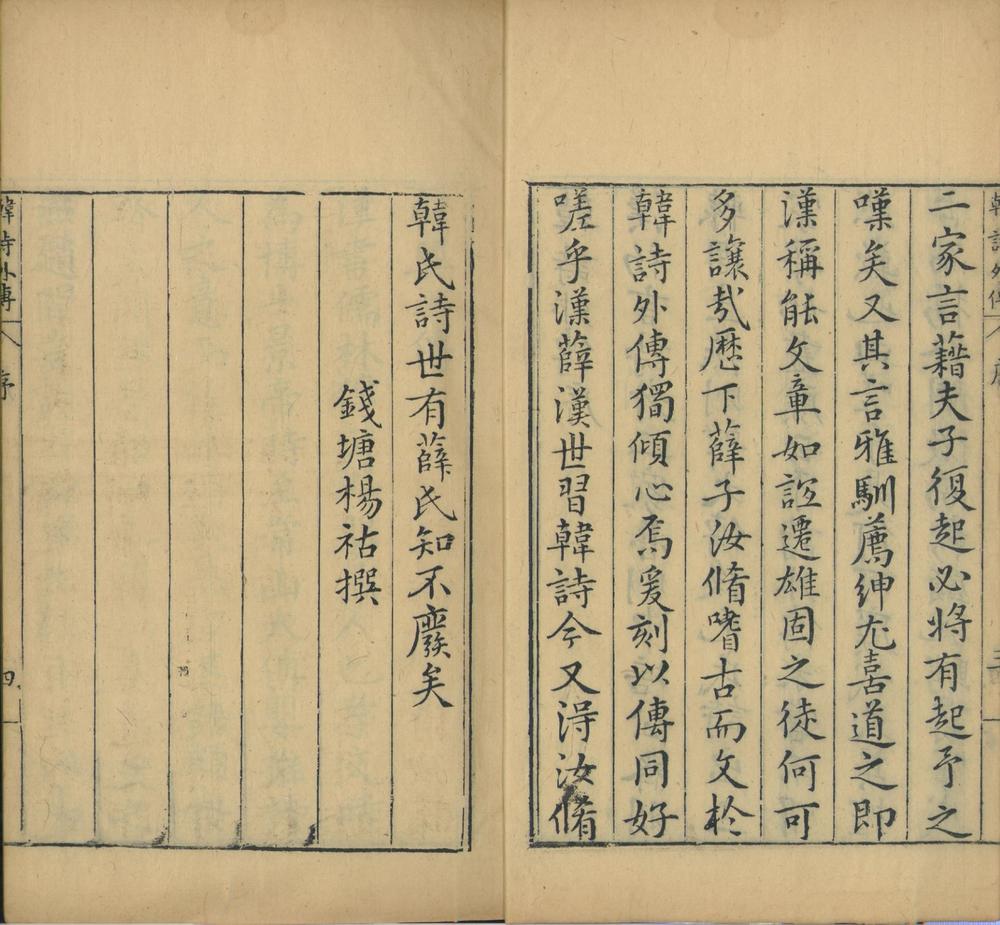 二家言藉夫子復起必將有起予之
嘆矣又其言雅馴薦紳尤喜道之即
漢稱能文章如誼遷雄固之徒何可
多讓㢤歴下薛子汝脩嗜古而文於
韓詩外傳獨傾心焉爰刻以傳同好
嗟乎漢薛漢世習韓詩今又淂汝脩
韓氏詩世有薛氏知不廢矣
錢塘楊祜撰
韓詩外傳 序 四